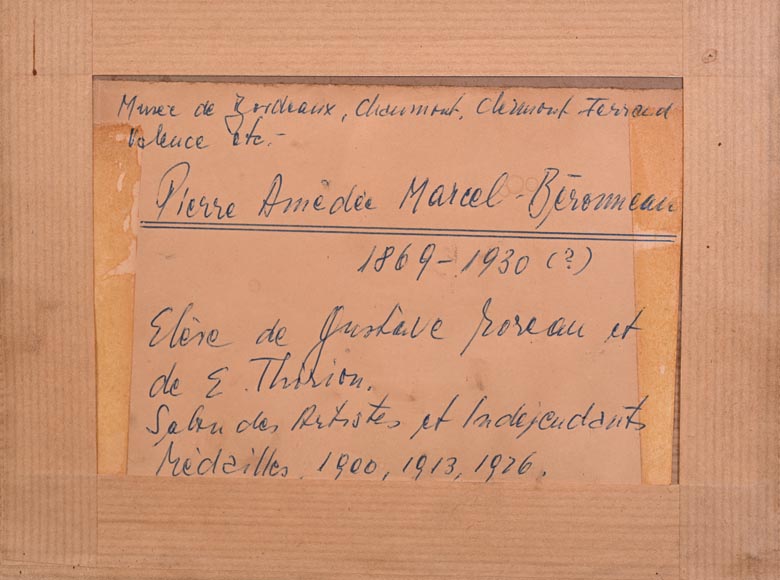 Musée de Bordeaux, Chaumont, Clermont Ferrand
Valence etc.-
Pierre Amédée Marcel-Béronneau
1869-1930 (?)
Elève de Gustave Moreau et
de E. Thirion.
Salon des Artistes et Indépendants
Médailles, 1900, 1913, 1926.